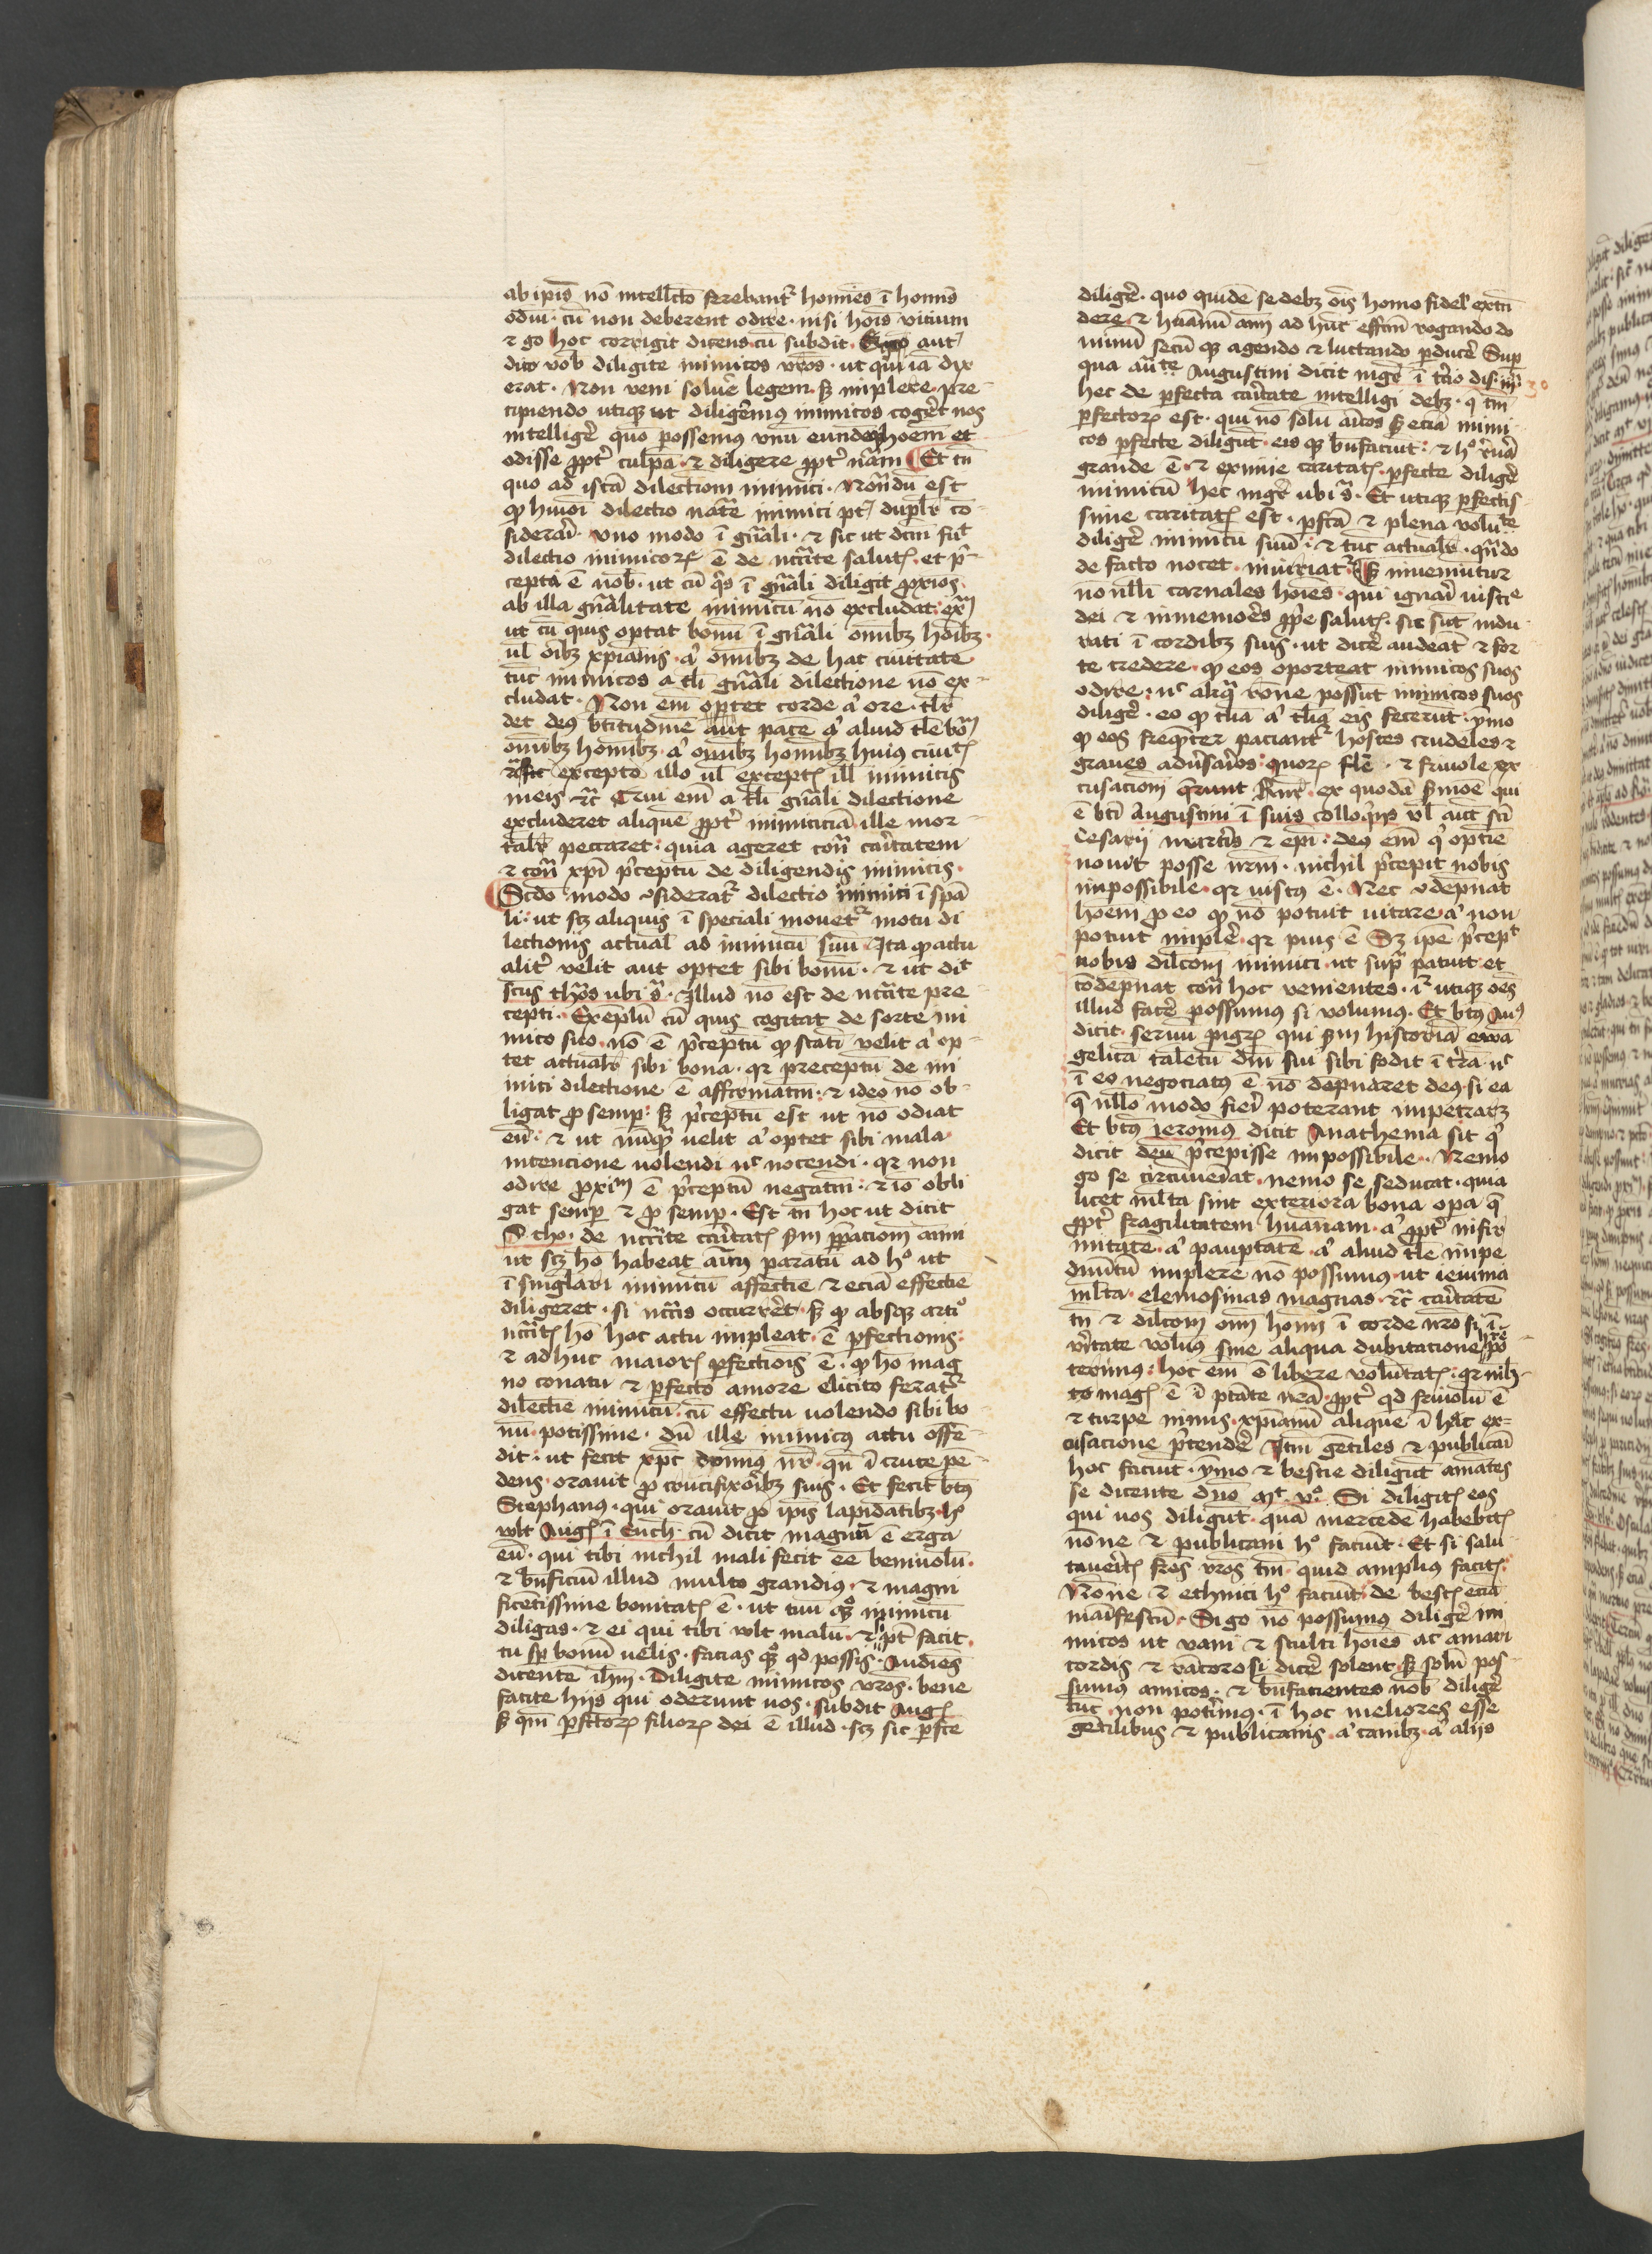 ab ip̄is nō intellecto ferebantᷣ homīes ī homīs
odiū · cū non deberent odire · nisi hoīs vitium
⁊ g̊o hoc corrigit dicens cū subdit · Ego aut̄
dico vob̄ diligite inimicos vr̄os · ut qui iā dix
erat · Non veni soluē legem · sꝫ implere · pre-
cipiendo utiqꝫ ut diligem̄ꝰ inimicos cogēt nos
intelligē quō possemꝰ vnū eundēqꝫ hoēm et
odisse ꝓpt̄ culpā · ⁊ diligere ꝓpt̄ nāꝫ Et tn̄
quo ad istā dilectionī inimici · Notandū est
ꝙ hm̄oi dilectio inimici pt̄ dupl̄r cō-
siderari · vno modo ī gn̄ali · ⁊ sic ut dc̄m
dilectio inimicoꝝ ē de nc̄cite salutꝭ · et p̄-
cepta ē nob̄ · ut cū q̄s ī gn̄ali diligit ꝓxios
ab illa gn̄alitate inimicū nō excludat
ut cū quis optat bonū ī gn̄ali omībꝫ hoībꝫ
ul̄ oībꝫ xpīanis a᷑ omībꝫ de hac ciuitate
tūc inimicos a tl̄i gn̄ali dilectione nō ex-
cludat · Non em̄ optet corde a᷑ ore · 
det deꝰ btitudinē aut pacē a᷑ aliud tl̄e bonū
omībꝫ homībꝫ · a᷑ omībꝫ homībꝫ huiꝰ ciuitꝭ
excepto illo ul̄ exceptꝭ ill̄ inimicis
meis ⁊c̄ Qui em̄ a tl̄i gn̄ali dilectione
excluderet aliquē ꝓpt̄ inimiciciā ille mor-
talr̄ peccaret · quia ageret cont̄ caritatem
⁊ cont̄ xpī p̄ceptū de diligendis inimicis ·
Scdo modo ꝯsideratᷣ dilectio inimici ī spā
li · ut scꝫ aliquis ī speciali mouetᷣ motu di
lectionis actual̄ ad inimicū suū · Ita ꝙ actu
alit̄ velit aut optet sibi bonū · ⁊ ut dic̄
sctūs thōs ubi s̄ · Illud nō est de nc̄cite pre
cepti · Exēplū cū quis cogitat de sorte ini
mico suo · nō ē p̄ceptū ꝙ statī velit a᷑ op-
tet actualr̄ sibi bona · qr preceptū de ini
mici dilectione ē affirmatiū · ⁊ ideo nō ob-
ligat ꝓ semꝑ · sꝫ p̄ceptū est ut nō odiat
eū · ⁊ ut nūqꝫ uelit a᷑ optet sibi mala
intencione uolendi uc̄ nocendi · qr non
odire ꝓximū ē p̄ceptū negatiū · ⁊ iō obli
gat semꝑ ⁊ ꝓ semꝑ · Est tn̄ hoc ut dicit
S tho · de nc̄cite caritatꝭ scd̄m p̄pacionē ani
ut scꝫ hō habeat aīm paratū ad hº ut
ī singlari inimicū affectiē ⁊ eciā effectiē
diligeret · si nc̄citas occurret · sꝫ ꝙ absqꝫ
nc̄citꝭ hō hoc actu impleat ē ꝑfectionis ·
⁊ adhuc maiorꝭ ꝑfectiōis ē · ꝙ hō mag
no conatu ⁊ ꝑfecto amore elicito feratᷣ
dilectiē inimicū cū effectu uolendo sibi bo
nū · potissime · dū ille inimicꝰ actu offē-
dit · ut fecit xpc̄ domnꝰ nr̄ · qn̄ ī cruce pē-
dens orauit ꝓ crucifixoribꝫ suis · Et fecit bt̄ꝰ
Stephanꝰ · qui orauit ꝓ ip̄is lapidātibꝫ · hº
vult Augꝰ ī Ench̄ · cū dicit magnū ē erga
eū · qui tibi nichil mali fecit eē beniuolū ·
⁊ bn̄ficiū illud multo grandiꝰ · ⁊ magni
ficētissime bonitatꝭ ē · ut tuū qºqꝫ inimicū
diligas · ⁊ ei qui tibi vult malū · ⁊ si pt̄ facit ·
tu sꝑ bonū uelis · facias qꝫ qd̄ possis · Audiens
dicentē ihm̄ · Diligite inimicos vr̄os · bene
facite hijs qui oderunt uos · subdit Augꝰ
sꝫ qm̄ ꝑfectoꝝ filioꝝ dei ē illud · scꝫ sic ꝑfecte
diligē · quo quidē se debꝫ oīs homo fidel' extē
dere · ⁊ humanū aīm ad hūc effcm̄ rogando do
minū secū qꝫ agendo ⁊ luctando ꝑducē Suꝑ
qua aūcte Augustini dicit mgr̄ ī t'cio dis · 30
hec de ꝑfecta caritate intelligi debꝫ · q tm̄
ꝑfectoꝝ est · qui nō solū aīcos sꝫ eciā inimi
cos ꝑfecte diligūt · eis qꝫ bn̄faciūt · ⁊ hº reuā
grande ē · ⁊ eximie caritatꝭ · ꝑfecte diligē
inimicū hec mgr̄ ubi s̄ · Et utiqꝫ ꝑfectis-
sime caritatꝭ est · ꝑfcā ⁊ plena volūte
diligē inimicū suū · ⁊ tūc actualr̄ · quādo
de facto nocet · iniuriatᷣ · Sꝫ inueniūtur
nōnulli carnales hoīes · qui ignari iusticie
dei ⁊ inmemores ꝓp̄e salutꝭ · sic sūt indu
rati ī cordibꝫ suis · ut dicē audeāt ⁊ for
te credere · ꝙ eos oporteat inimicos suos
odire · nc̄ aliqua rōne possūt inimicos suos
diligē · eo ꝙ tl̄ia a᷑ tl̄ia eis fecerūt · ymo
ꝙ eos frequēter paciantᷣ hostes crudeles ⁊
graues aduersarios · quoꝝ · ⁊ friuole ex
cusacionī q̄runt · ex quodā s̄moē qui
ē bt̄i Augustini ī suis colloq̄is vl̄ aut sc̄i
Cesarij martīs ⁊ epī · deꝰ em̄ qui optīe
nouit posse nr̄m · nichil p̄cepit nobis
inpossibile · qr iustꝰ ē · Nec ꝯdēpnat
hoēm ꝓ eo ꝙ nō potuit uitare a᷑ non
potuit implē · qr piꝰ ē Sꝫ ip̄e p̄cepᵗ
nobis dilc̄onī inimici · ut supᷓ patuit et
cōdēpnat cont̄ hoc venientes · iᷓ utiqꝫ oēs
illud facē possumꝰ si volumꝰ · Et bt̄ꝰ Auᵍ
dicit · seruū pigꝝ qui scd̄m historiā ewā
gelicā talētū dn̄i sui sibi fodit ī t'ra · nc̄
ī eo negociatꝰ ē nō dāpnaret deꝰ · si ea
q̄ nullo modo fieri poterant impetraꝫ
Et bt̄ꝰ Ieronimꝰ dicit Anathema sit qui
dicit deū p̄cepisse inpossibile · Nemo
g̊o se circūueniat · nemo se seducat · quia
licet ml̄ta sint exteriora bona oꝑa q̄
ꝓpt̄ fragilitatem humanam · a᷑ ꝓpt̄ infir
mitatē · a᷑ pauꝑtatē · a᷑ aliud tl̄e impe
dimētū implere nō possumꝰ · ut ieiunia
ml̄ta · elemosinas magnas · ⁊c̄ caritatē
tn̄ ⁊ dilc̄onī om̄i homī ī corde nr̄o si ī
v̄itate volumꝰ sine aliqua dubitacione hr̄e po
terimꝰ · hoc em̄ ē libere volūtatꝭ · qr nichil
to magꝭ ē ī ptāte nr̄a · ꝓpt̄ qd̄ friuolū ē
⁊ turpe nimis · xp̄ianū aliquē ī hac ex=
cusacione p̄tendē Itm̄ gētiles ⁊ publicani
hoc faciūt · ymo ⁊ bestie diligūt amātes
se dicente dn̄o mᵗ vº · Si diligitꝭ eos
qui uos diligūt · quā mercedē habebitꝭ
nōne ⁊ publicani hº faciūt · Et si salu
taueritꝭ fr̄es vr̄os tm̄ · quid ampliꝰ facitꝭ
Nōne ⁊ ethnici hº faciūt · de bestꝭ eciā
manifestū · Si g̊o nō possumꝰ diligē ini
micos ut vani ⁊ stulti hoīes ac amari
cordis ⁊ rācorosi dicē solent · sꝫ solū pos
sumꝰ amicos · ⁊ bn̄facientes nob̄ diligē
tūc non pot'imꝰ · ī hoc meliores esse
gētilibus ⁊ publicanis · a᷑ canibꝫ · a᷑ alijs